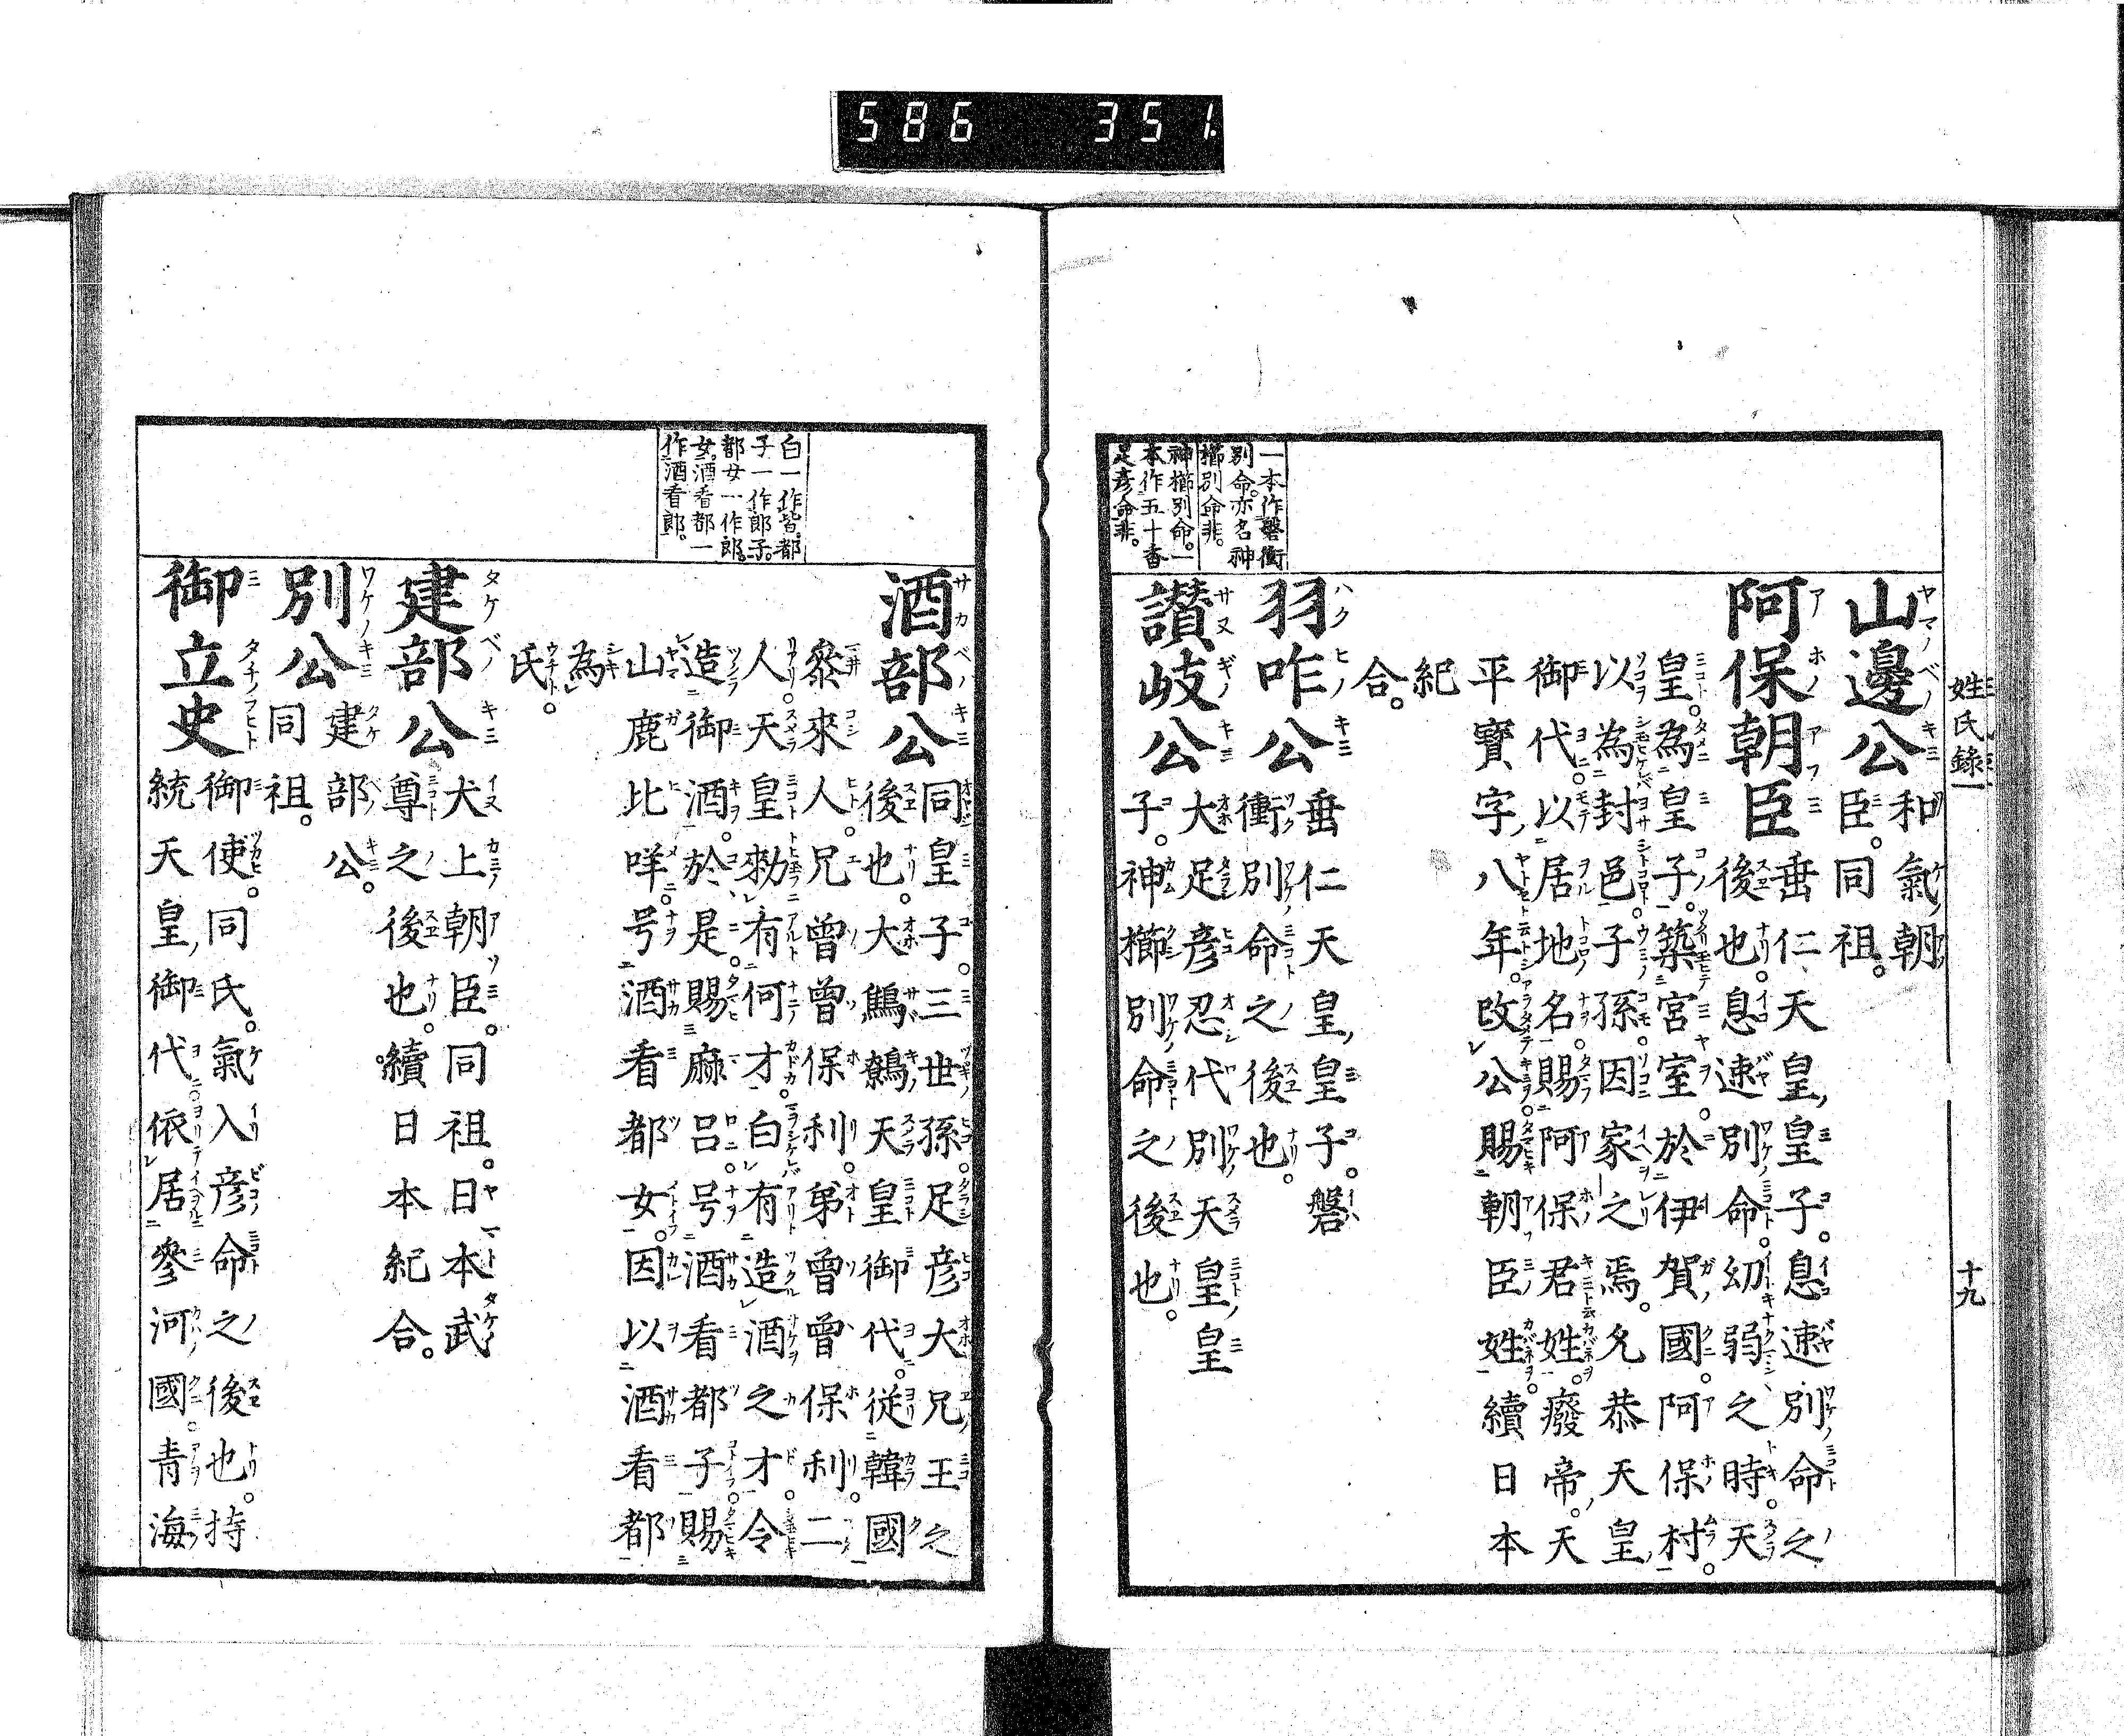 586 351.
姓氏錄一
十九
一本作磐衝
別命。亦名神
櫛別命非。
神櫛別命。一
本作五十香
足彦命非。
山邊公 和氣朝
臣。同祖。
阿保朝臣 垂仁天皇皇子。息速別命之
後也。息速別命。幼弱之時。天
皇。為皇子。築宮室。於伊賀國。阿保村。
以為封邑。子孫因家之焉。允恭天皇
御代。以居地名。賜阿保君姓。廢帝。天
平寶字八年。改公。賜朝臣姓。續日本
紀
合。
羽咋公 垂仁天皇皇子。磐
衝別命之後也。
讃岐公 大足彦忍代別天皇皇
子。神櫛別命之後也。
白一作皆。都
子一作郎子。
都女一作郎
女。酒看都一
作酒看郎。
酒部公 同皇子。三世孫。足彦大兄王之
後也。大鷦鷯天皇御代。從韓國
叅來人。兄曾曾保利。弟曾曾保利。二
人。天皇勅有何才。白有造酒之才。令
造御酒。於是。賜麻呂。号酒看都子。賜
山鹿比咩。号酒看都女。因以酒看都
為
氏。
建部公 犬上朝臣。同祖。日本武
尊之後也。續日本紀合。
別公 建部公。
同祖。
御立史 御使。同氏。氣入彦命之後也。持
統天皇御代。依居參河國。青海